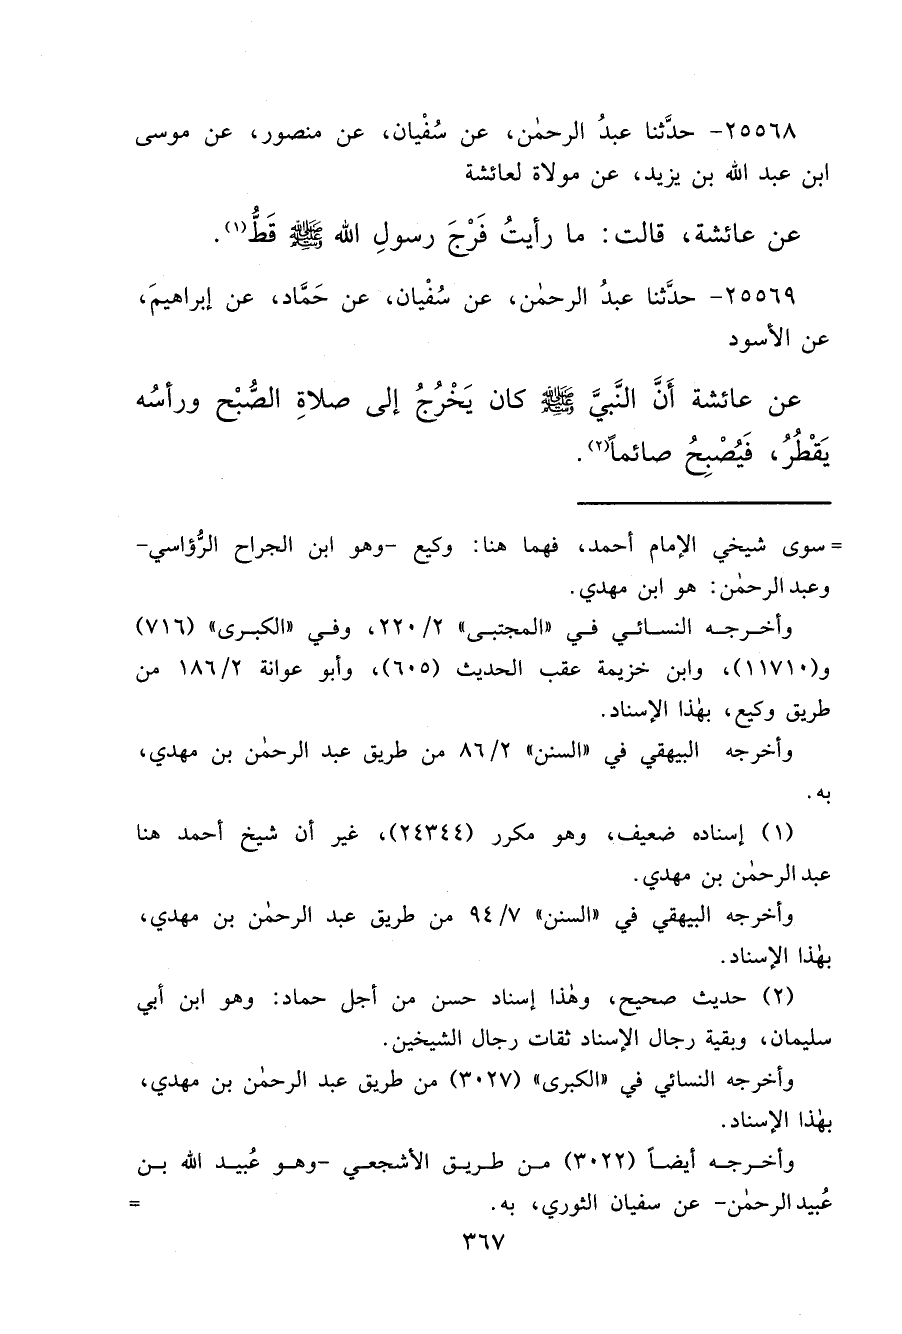 ٢٥٥٦٨- حدَّثنا عبدُ الرحمٰن، عن سُفْيان، عن منصور، عن موسى
ابن عبد الله بن يزيد، عن مولاة لعائشة
عن عائشة، قالت: ما رأيتُ فَرْجَ رسولِ الله ﷺ قَطُّ(١).
٢٥٥٦٩- حدَّثنا عبدُ الرحمٰن، عن سُفْيان، عن حَمَّاد، عن إبراهيمَ،
عن الأسود
عن عائشة أَنَّ النَّبيَّ ﷺ كان يَخْرُجُ إلى صلاةِ الصُّبْح ورأسُه
يَقْطُرُ، فَيُصْبِحُ صائماً(٢).
= سوى شيخي الإمام أحمد، فهما هنا: وكيع -وهو ابن الجراح الرُّؤاسي-
وعبد الرحمٰن: هو ابن مهدي.
وأخـرجـه النسـائي فـي «المجتبـى» ٢٢٠/٢، وفـي «الكبرى» (٧١٦)
و(١١٧١٠)، وابن خزيمة عقب الحديث (٦٠٥)، وأبو عوانة ١٨٦/٢ من
طريق وكيع، بهٰذا الإسناد.
وأخرجه البيهقي في «السنن» ٨٦/٢ من طريق عبد الرحمٰن بن مهدي،
به.
(١) إسناده ضعيف، وهو مكرر (٢٤٣٤٤)، غير أن شيخ أحمد هنا
عبد الرحمٰن بن مهدي.
وأخرجه البيهقي في «السنن» ٩٤/٧ من طريق عبد الرحمٰن بن مهدي،
بهٰذا الإسناد.
(٢) حديث صحيح، وهٰذا إسناد حسن من أجل حماد: وهو ابن أبي
سليمان، وبقية رجال الإسناد ثقات رجال الشيخين.
وأخرجه النسائي في «الكبرى» (٣٠٢٧) من طريق عبد الرحمٰن بن مهدي،
بهٰذا الإسناد.
وأخـرجـه أيضـاً (٣٠٢٢) مـن طـريـق الأشجعي -وهـو عُبيـد الله بـن
عُبيد الرحمٰن- عن سفيان الثوري، به. =
٣٦٧